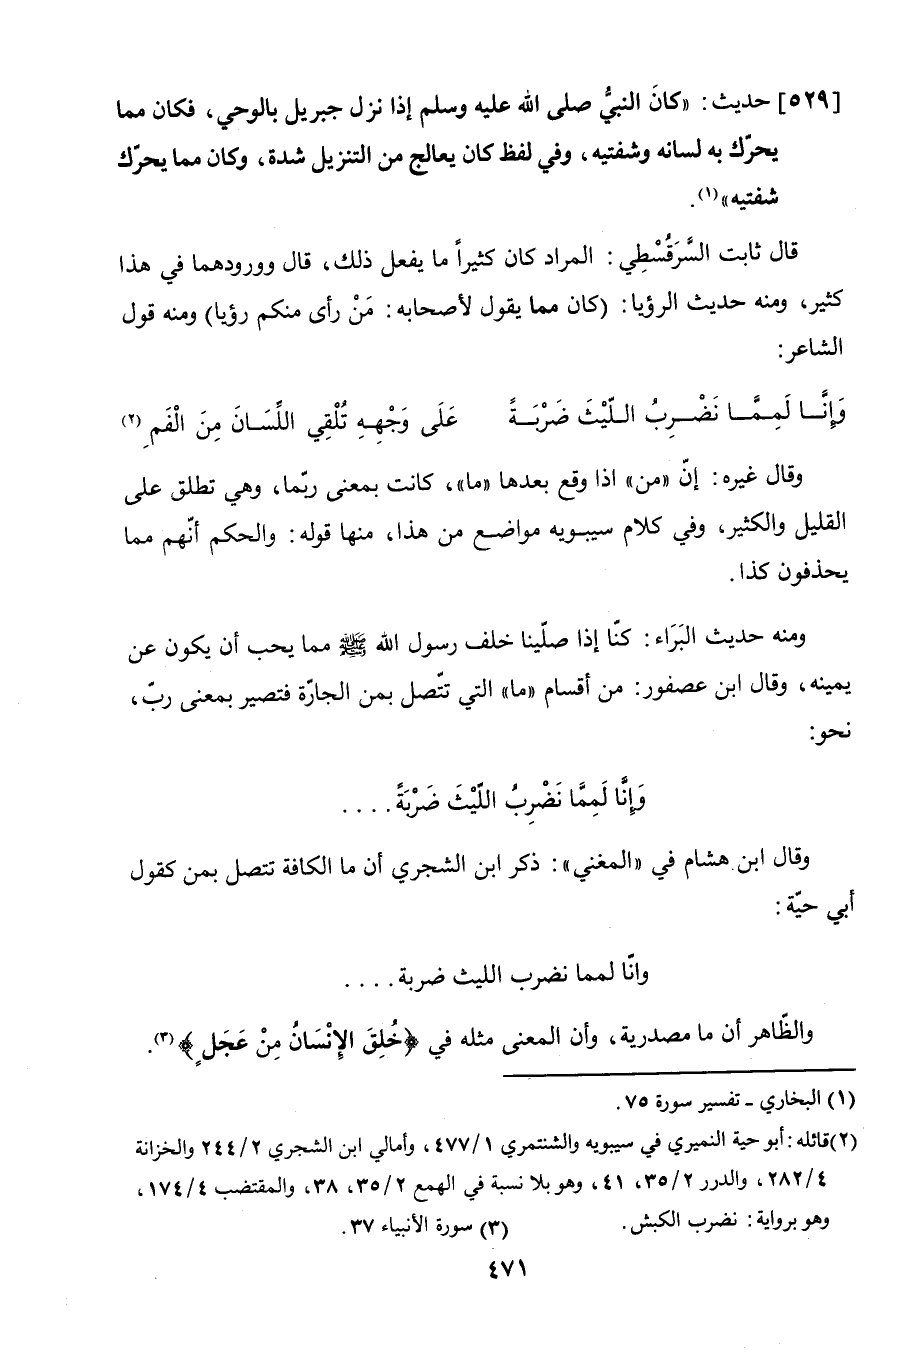 [٥٢٩] حديث: «كانَ النبيُّ صلى الله عليه وسلم إذا نزل جبريل بالوحي، فكان مما
يحرّك به لسانه وشفتيه، وفي لفظ كان يعالج من التنزيل شدة، وكان مما يحرّك
شفتيه»(١).
قال ثابت السَّرَقُسْطِي: المراد كان كثيراً ما يفعل ذلك، قال وورودهما في هذا
كثير، ومنه حديث الرؤيا: (كان مما يقول لأصحابه: مَنْ رأى منكم رؤيا) ومنه قول
الشاعر:
وَإِنَّا لَمِمَّا نَضْرِبُ اللّيْثَ ضَرْبَةً عَلَى وَجْهِهِ تُلْقِي اللِّسَانَ مِنَ الْفَمِ (٢)
وقال غيره: إنّ «من» اذا وقع بعدها «ما»، كانت بمعنى ربّما، وهي تطلق على
القليل والكثير، وفي كلام سيبويه مواضع من هذا، منها قوله: والحكم أنّهم مما
يحذفون كذا.
ومنه حديث البَرَاء: كنّا إذا صلّينا خلف رسول الله ﷺ مما يحب أن يكون عن
يمينه، وقال ابن عصفور: من أقسام «ما» التي تتّصل بمن الجارّة فتصير بمعنى ربّ،
نحو:
وَإِنَّا لَمِمَّا نَضْرِبُ اللّيْثَ ضَرْبَةً....
وقال ابن هشام في «المغني»: ذكر ابن الشجري أن ما الكافة تتصل بمن كقول
أبي حيّة:
وانّا لمما نضرب الليث ضربة....
والظّاهر أن ما مصدرية، وأن المعنى مثله في ﴿خُلِقَ الإِنْسَانُ مِنْ عَجَلٍ﴾(٣).
(١) البخاري - تفسير سورة ٧٥.
(٢) قائله: أبو حية النميري في سيبويه والشنتمري ٤٧٧/١، وأمالي ابن الشجري ٢٤٤/٢ والخزانة
٢٨٢/٤، والدرر ٣٥/٢، ٤١، وهو بلا نسبة في الهمع ٣٥/٢، ٣٨، والمقتضب ١٧٤/٤،
وهو برواية: نضرب الكبش. (٣) سورة الأنبياء ٣٧.
٤٧١